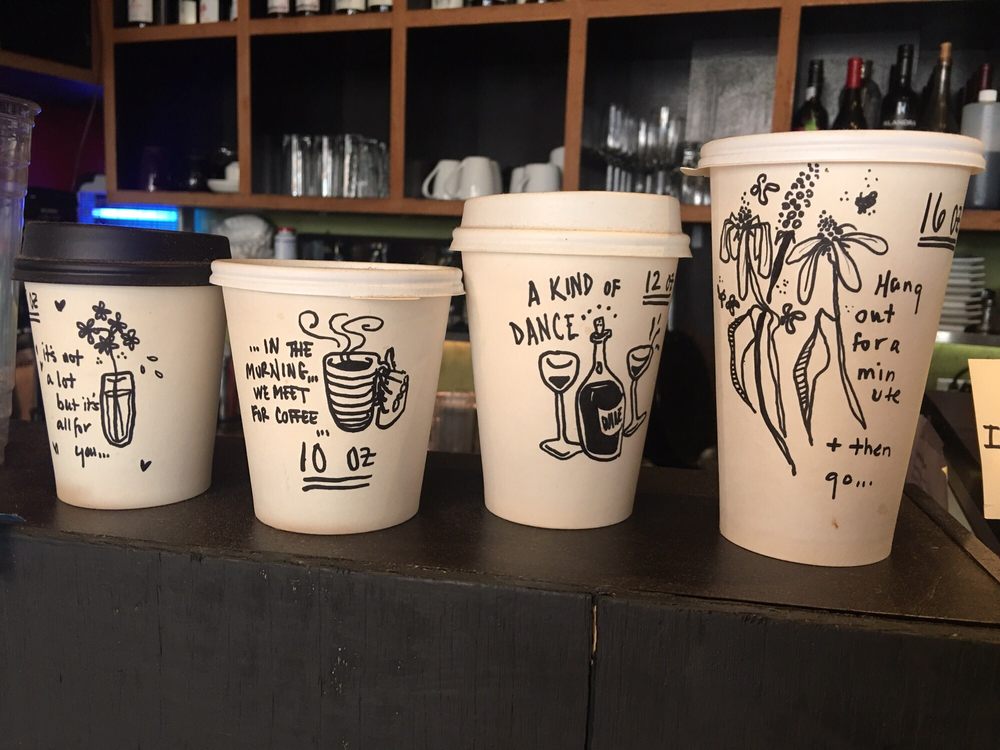 oz
it's not
a lot
but it's
all for
you...
... IN THE
MORNING...
WE MEET
FOR COFFEE
...
10 OZ
A KIND OF
DANCE...
12 oz
WINE
16 oz
Hang
out
for a
min
ute
+ then
go...